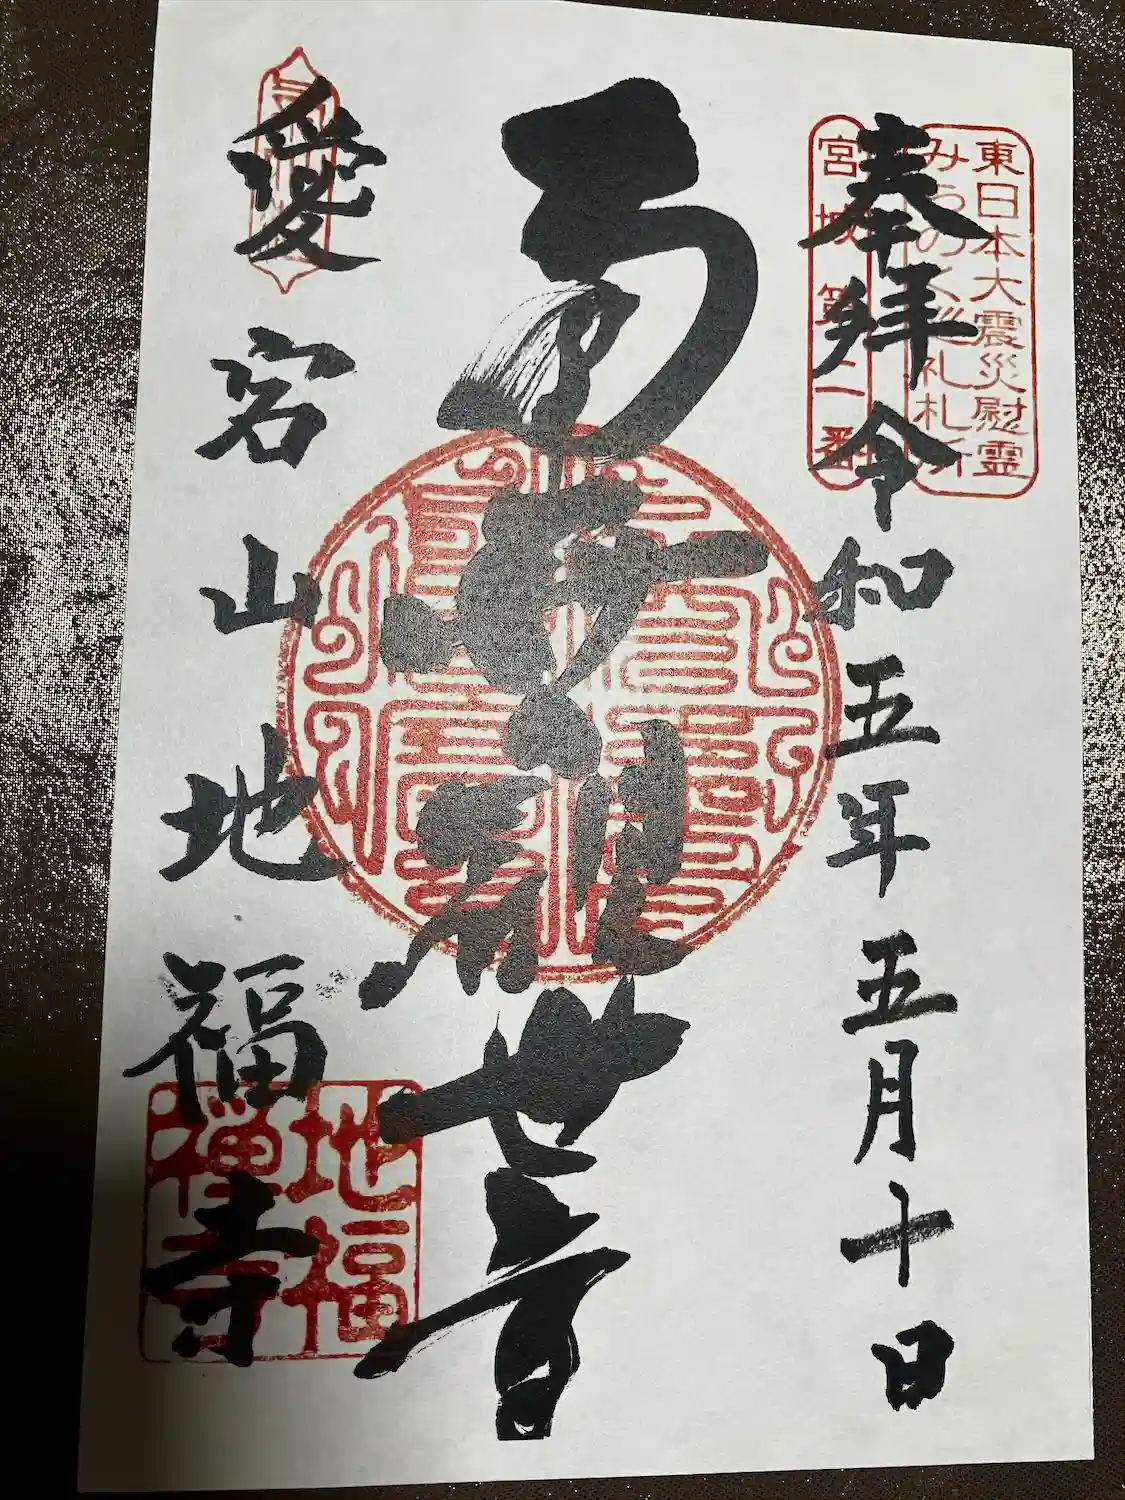 東日本大震災慰霊
みちのく巡礼札所
宮城第二番
奉拝 令和五年五月十日
南無観世音
愛宕山地福寺
地福
禅寺